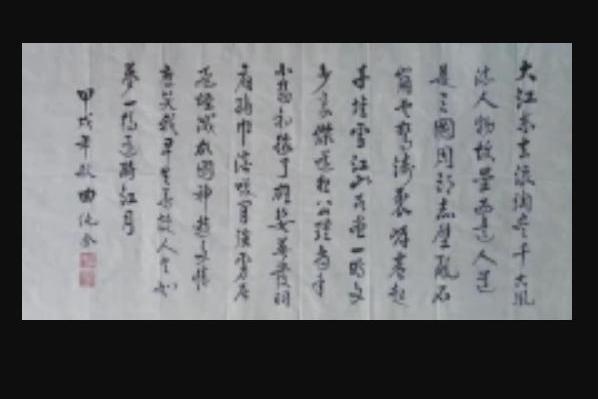 大江東去浪淘盡千古風
流人物故壘西邊人道
是三國周郎赤壁亂石
崩雲驚濤裂岸卷起
千堆雪江山如畫一時多
少豪傑遙想公瑾當年
小喬初嫁了雄姿英發羽
扇綸巾談笑間強虜灰
飛煙滅故國神遊多情
應笑我早生華髮人生如
夢一樽還酹江月
甲戌年秋